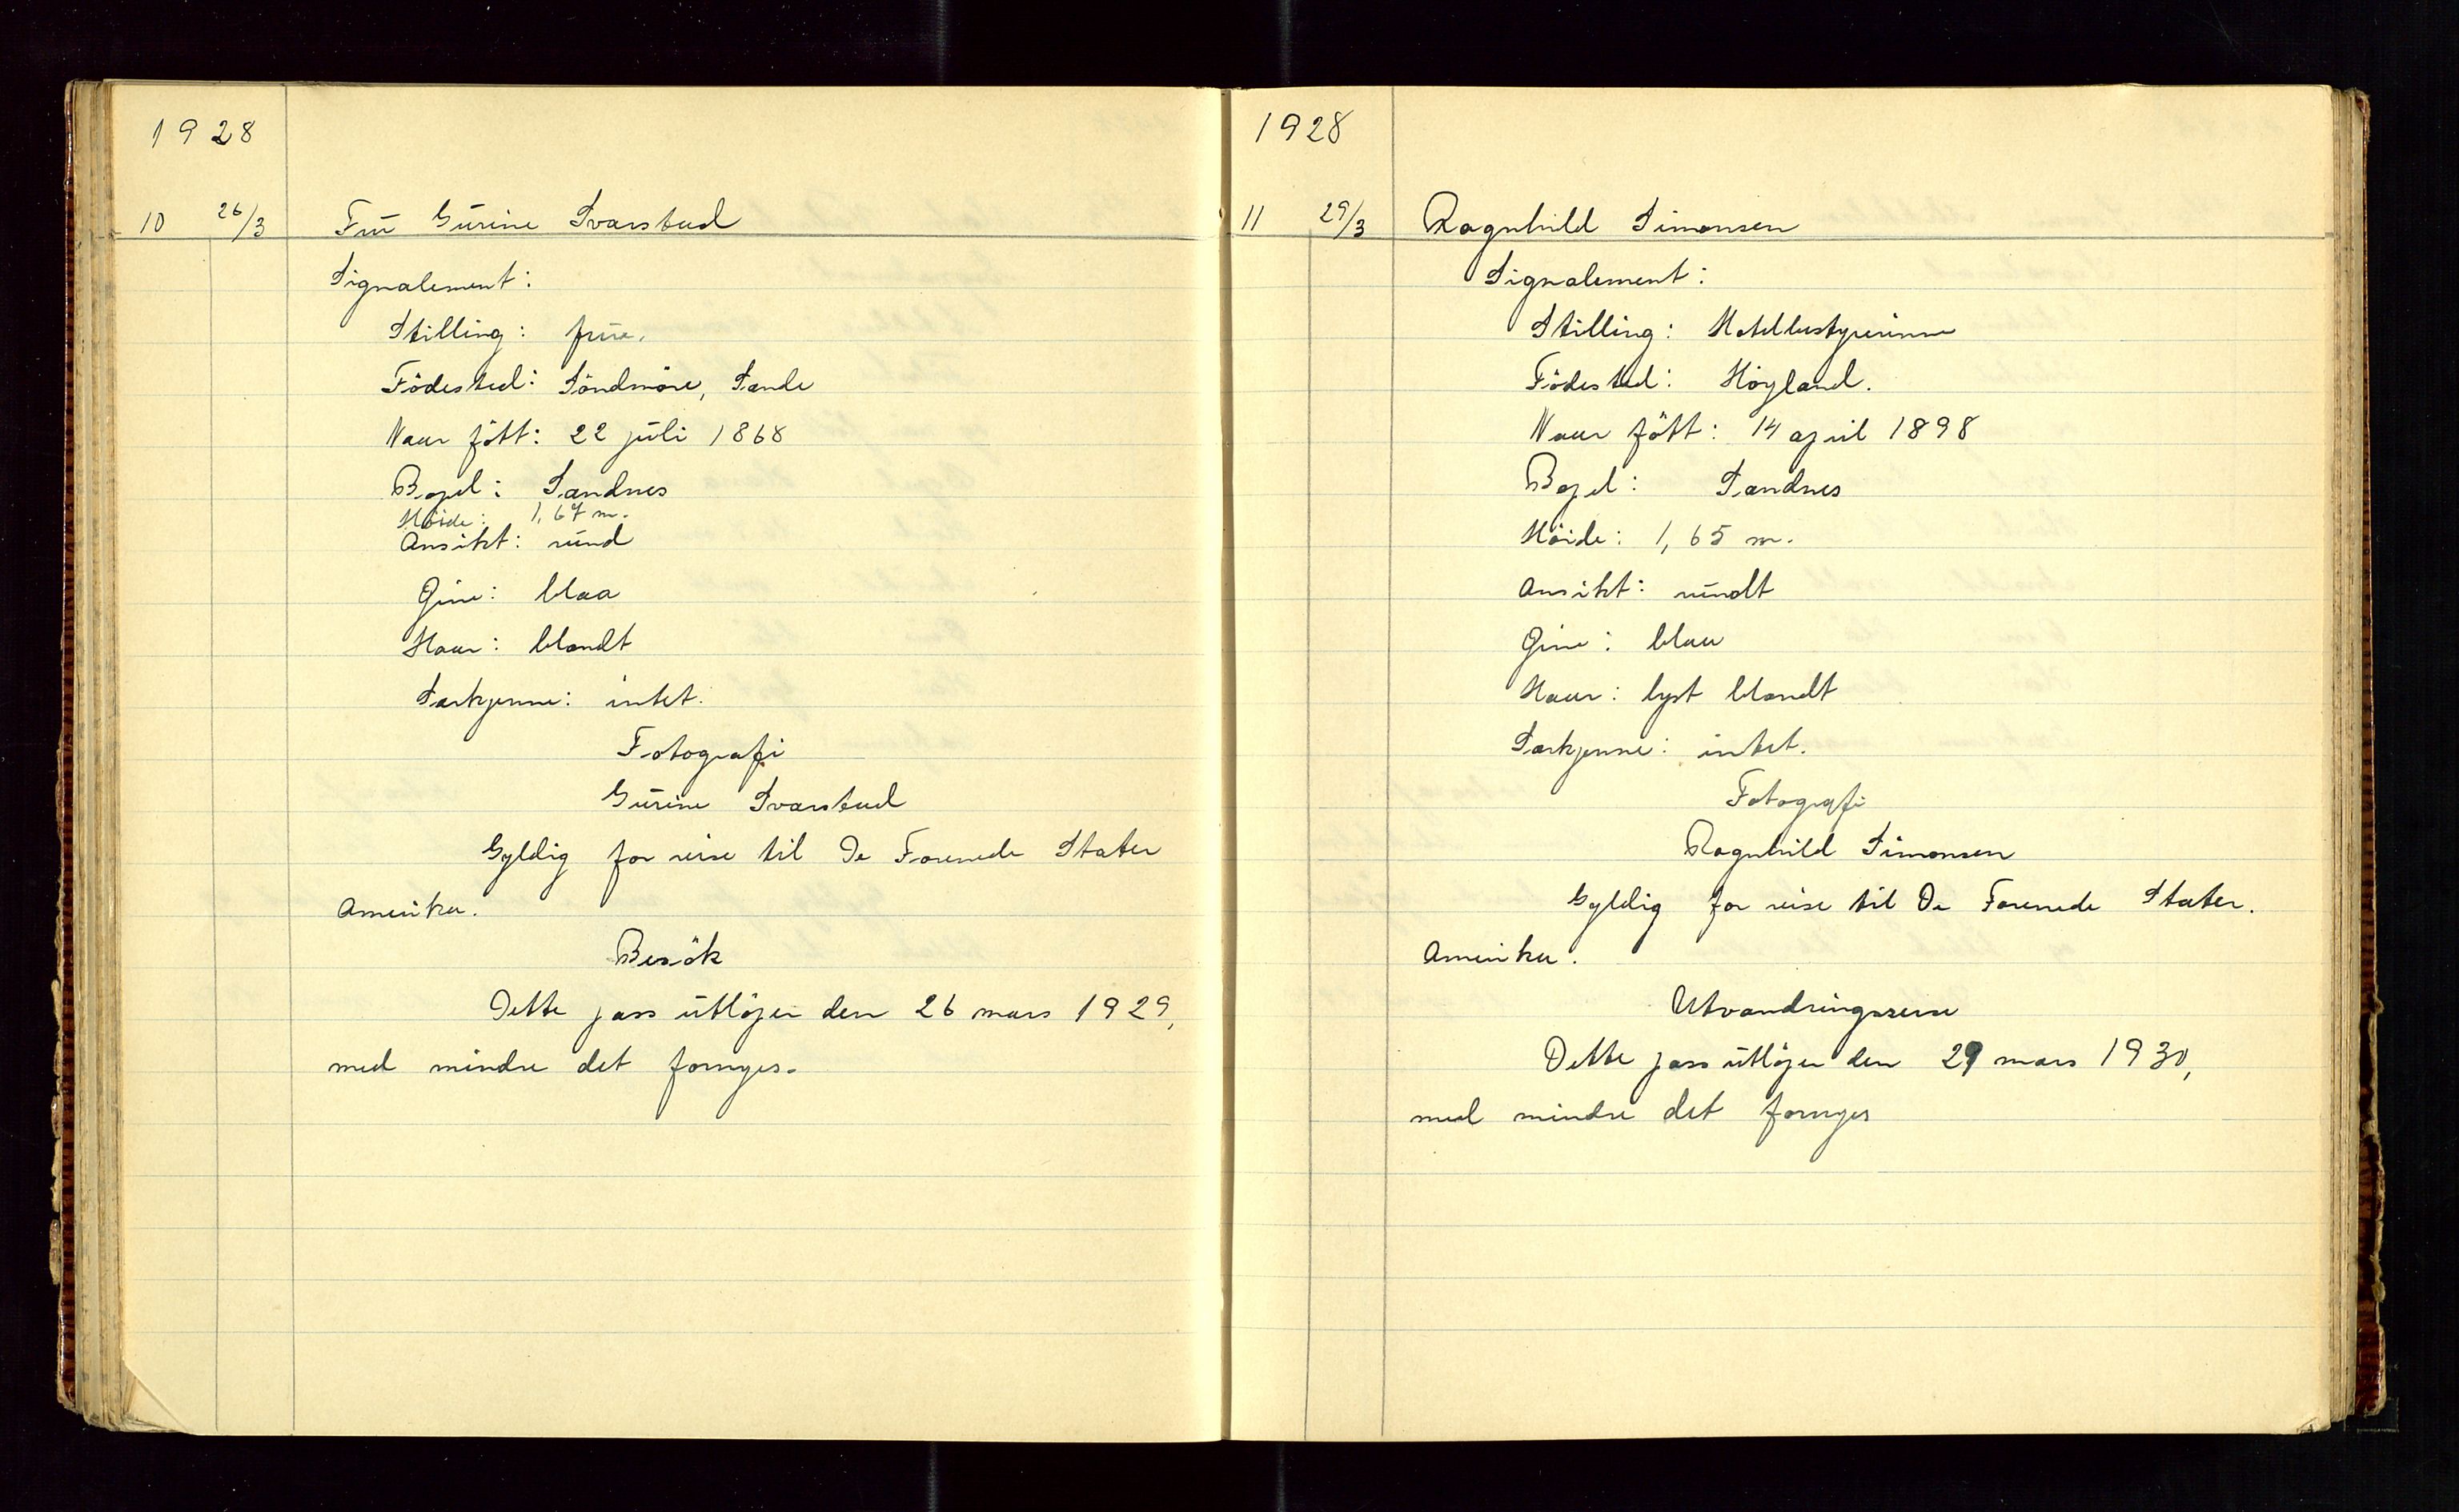 1928
10 26/3 Frū Gūrine Svarstad
Signalement:
Stilling: frūe.
Födested: Söndmöre, Sande
Naar fött: 22 jūli 1868
Bopel: Sandnes
Höide: 1,67 m.
Ansikt: rūnd
Öine: blaa
Haar: blondt
Særkjenne: intet.
Fotografi
Gūrine Svarstad
Gyldig for reise til De Forenede Stater
Amerika.
Besök
Dette pass ūtlöper den 26 mars 1929,
med mindre det fornyes.
1928
11 29/3 Ragnhild Simonsen
Signalement:
Stilling: Hotellbestyrerinne
Födested: Höyland.
Naar fött: 14 april 1898
Bopel: Sandnes
Höide: 1,65 m.
Ansikt: rūndt
Öine: blaa
Haar: lyst blondt
Særkjenne: intet.
Fotografi
Ragnhild Simonsen
Gyldig for reise til De Forenede Stater.
Amerika.
Utvandringsreise
Dette pass ūtlöper den 29 mars 1930,
med mindre det fornyes